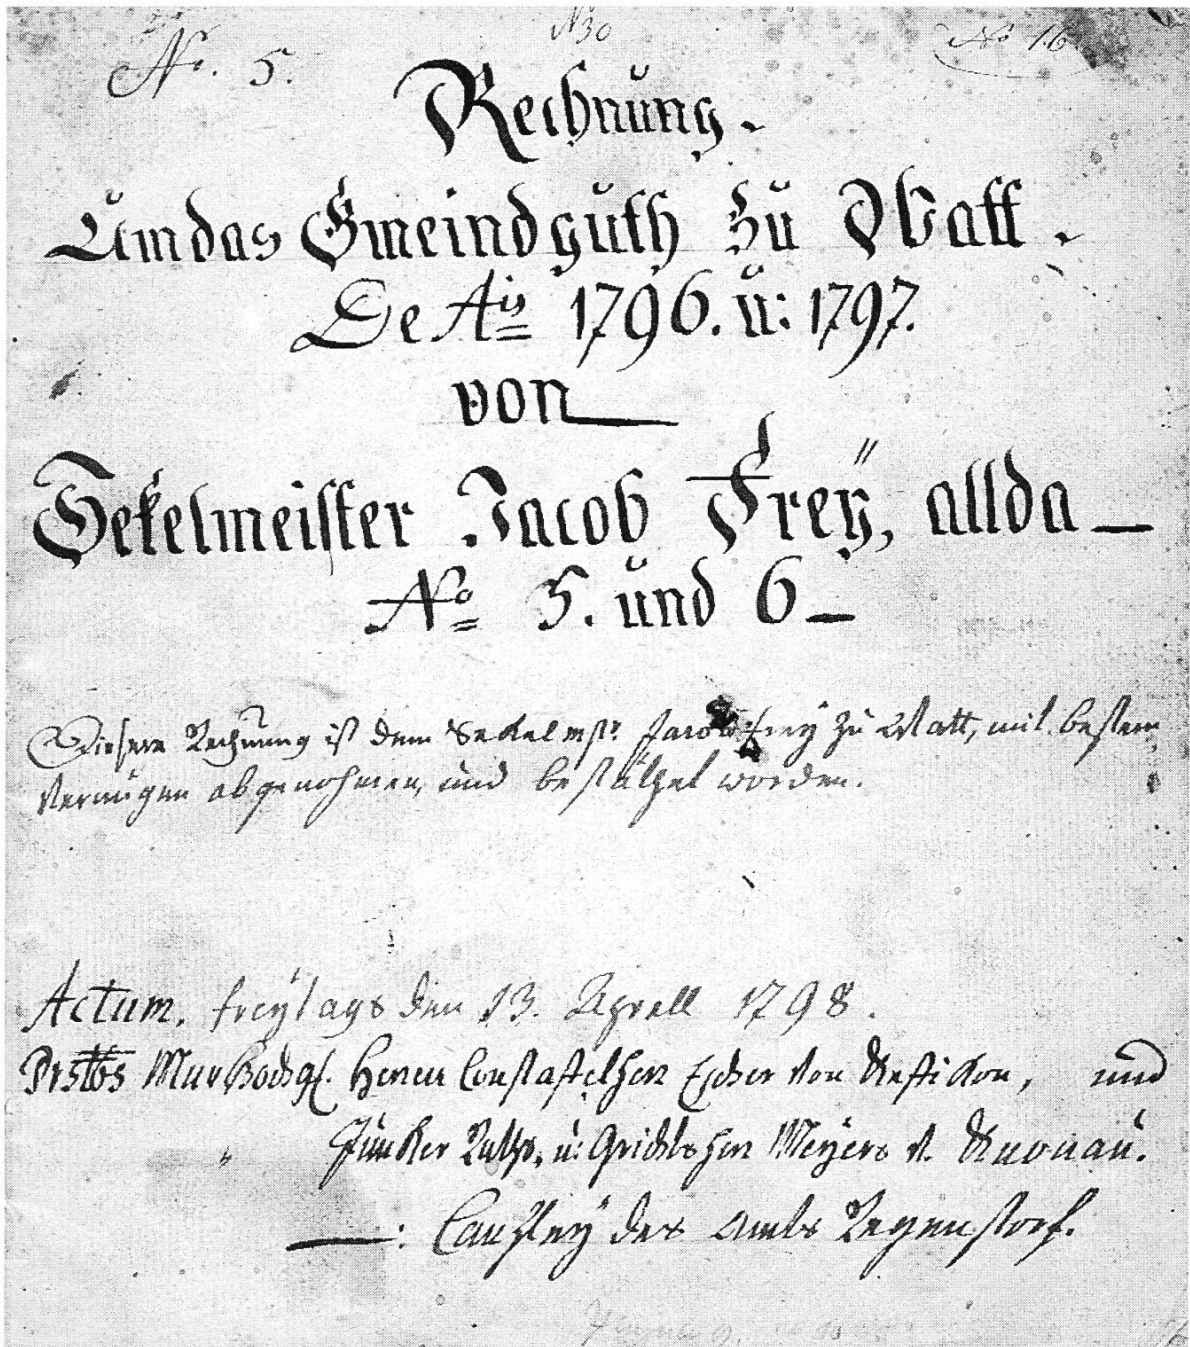 No. 5.
N 30
No 16
Rechnung.
Um das Gmeindguth zu Watt.
De Ais 1796. u: 1797.
von
Sekelmeister Jacob Freÿ, allda
No 5. und 6
Diesere Rechnung ist dem Sekelmstr. Jacob Freÿ zu Watt, mit bestem
Vernügen abgenohmen, und bestäthet worden.
Actum, Freÿtags den 13. Aprell 1798.
Prstbs MnhHochgl. Herren Constafelherr Escher von Kefikon, und
" Junker Raths, u: Grichtsherr Meÿers v. Knonau.
: Canzleÿ des Amts Regenstorf.